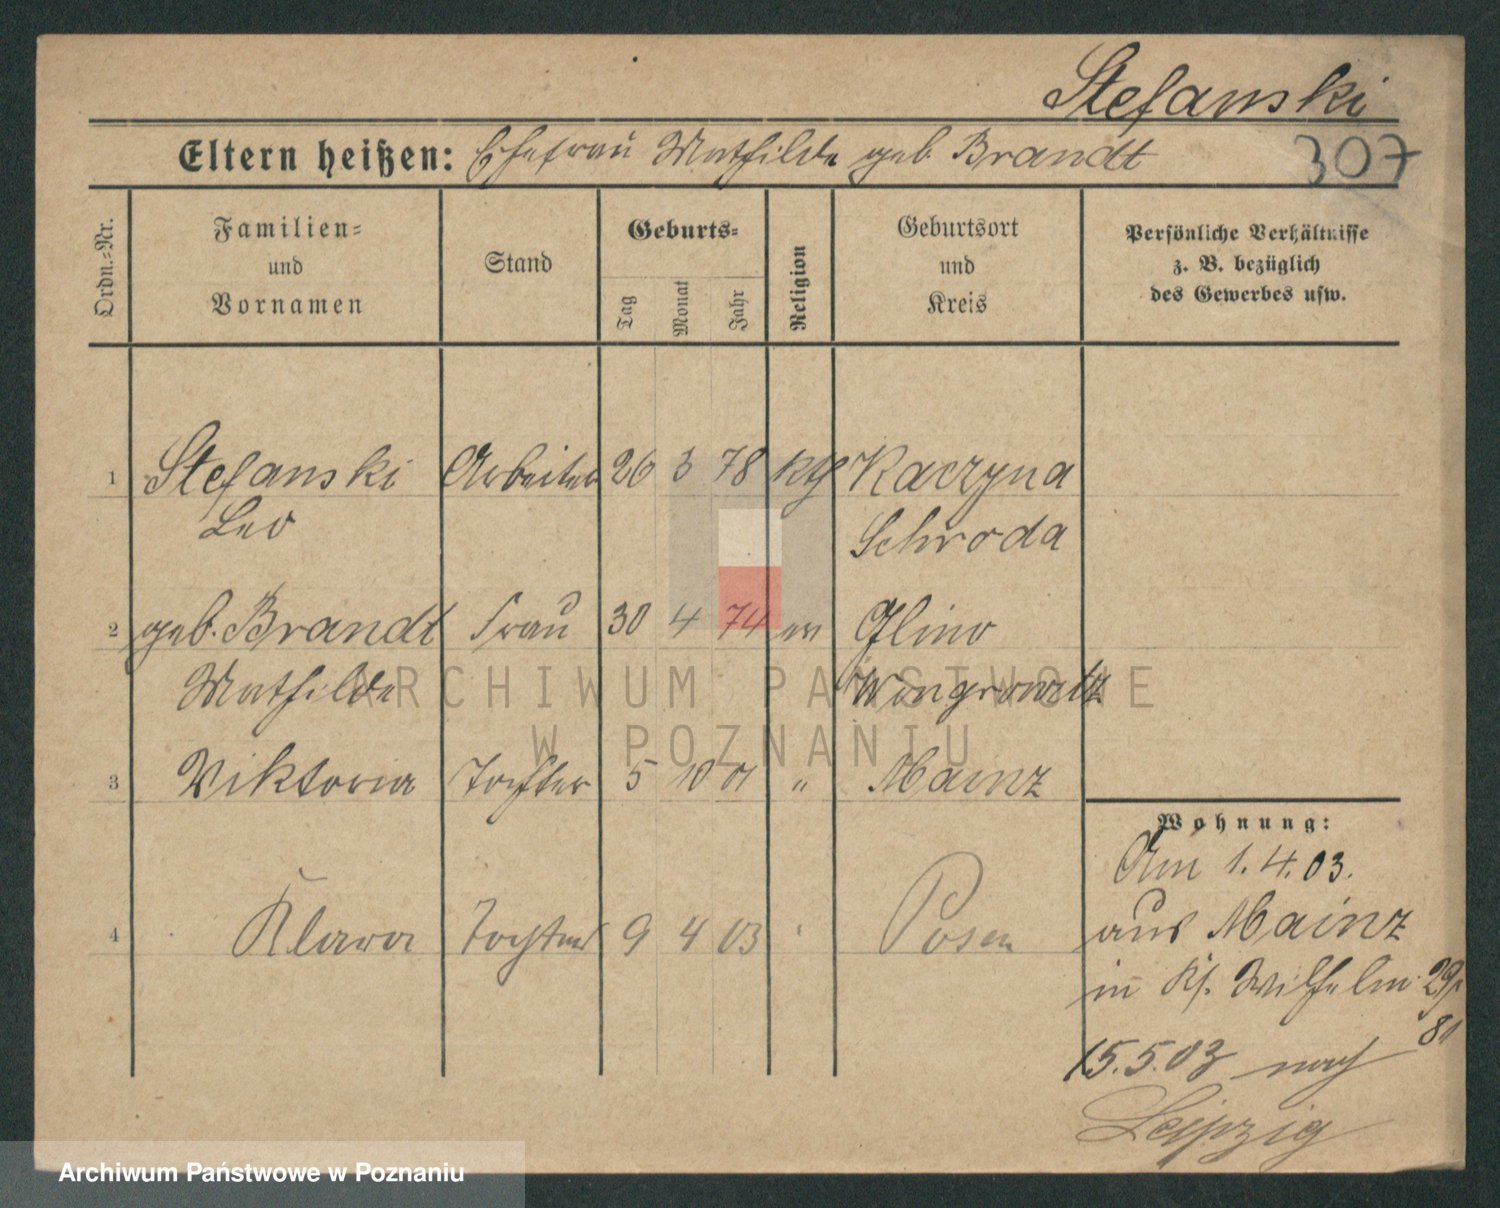 Stefanski
307
Eltern heißen: Ehefrau Mathilde geb. Brandt
Ordn.-Nr.
Familien-
und
Vornamen
Stand
Geburts-
Tag
Monat
Jahr
Religion
Geburtsort
und
Kreis
Persönliche Verhältnisse
z. B. bezüglich
des Gewerbes usw.
1 Stefanski Arbeiter 26 3 78 kth Kaczyna
Leo Schroda
2 geb. Brandt Frau 30 4 74 ev
Mathilde Wongrowitz
3 Viktoria Tochter 5 10 01 " Mainz
4 Klara Tochter 9 4 03 " Posen
Wohnung:
Am 1.4.03.
aus Mainz
in Wilhelm 29
15.5.03 nach
Leipzig
ARCHIWUM PAŃSTWOWE
W POZNANIU
Archiwum Państwowe w Poznaniu